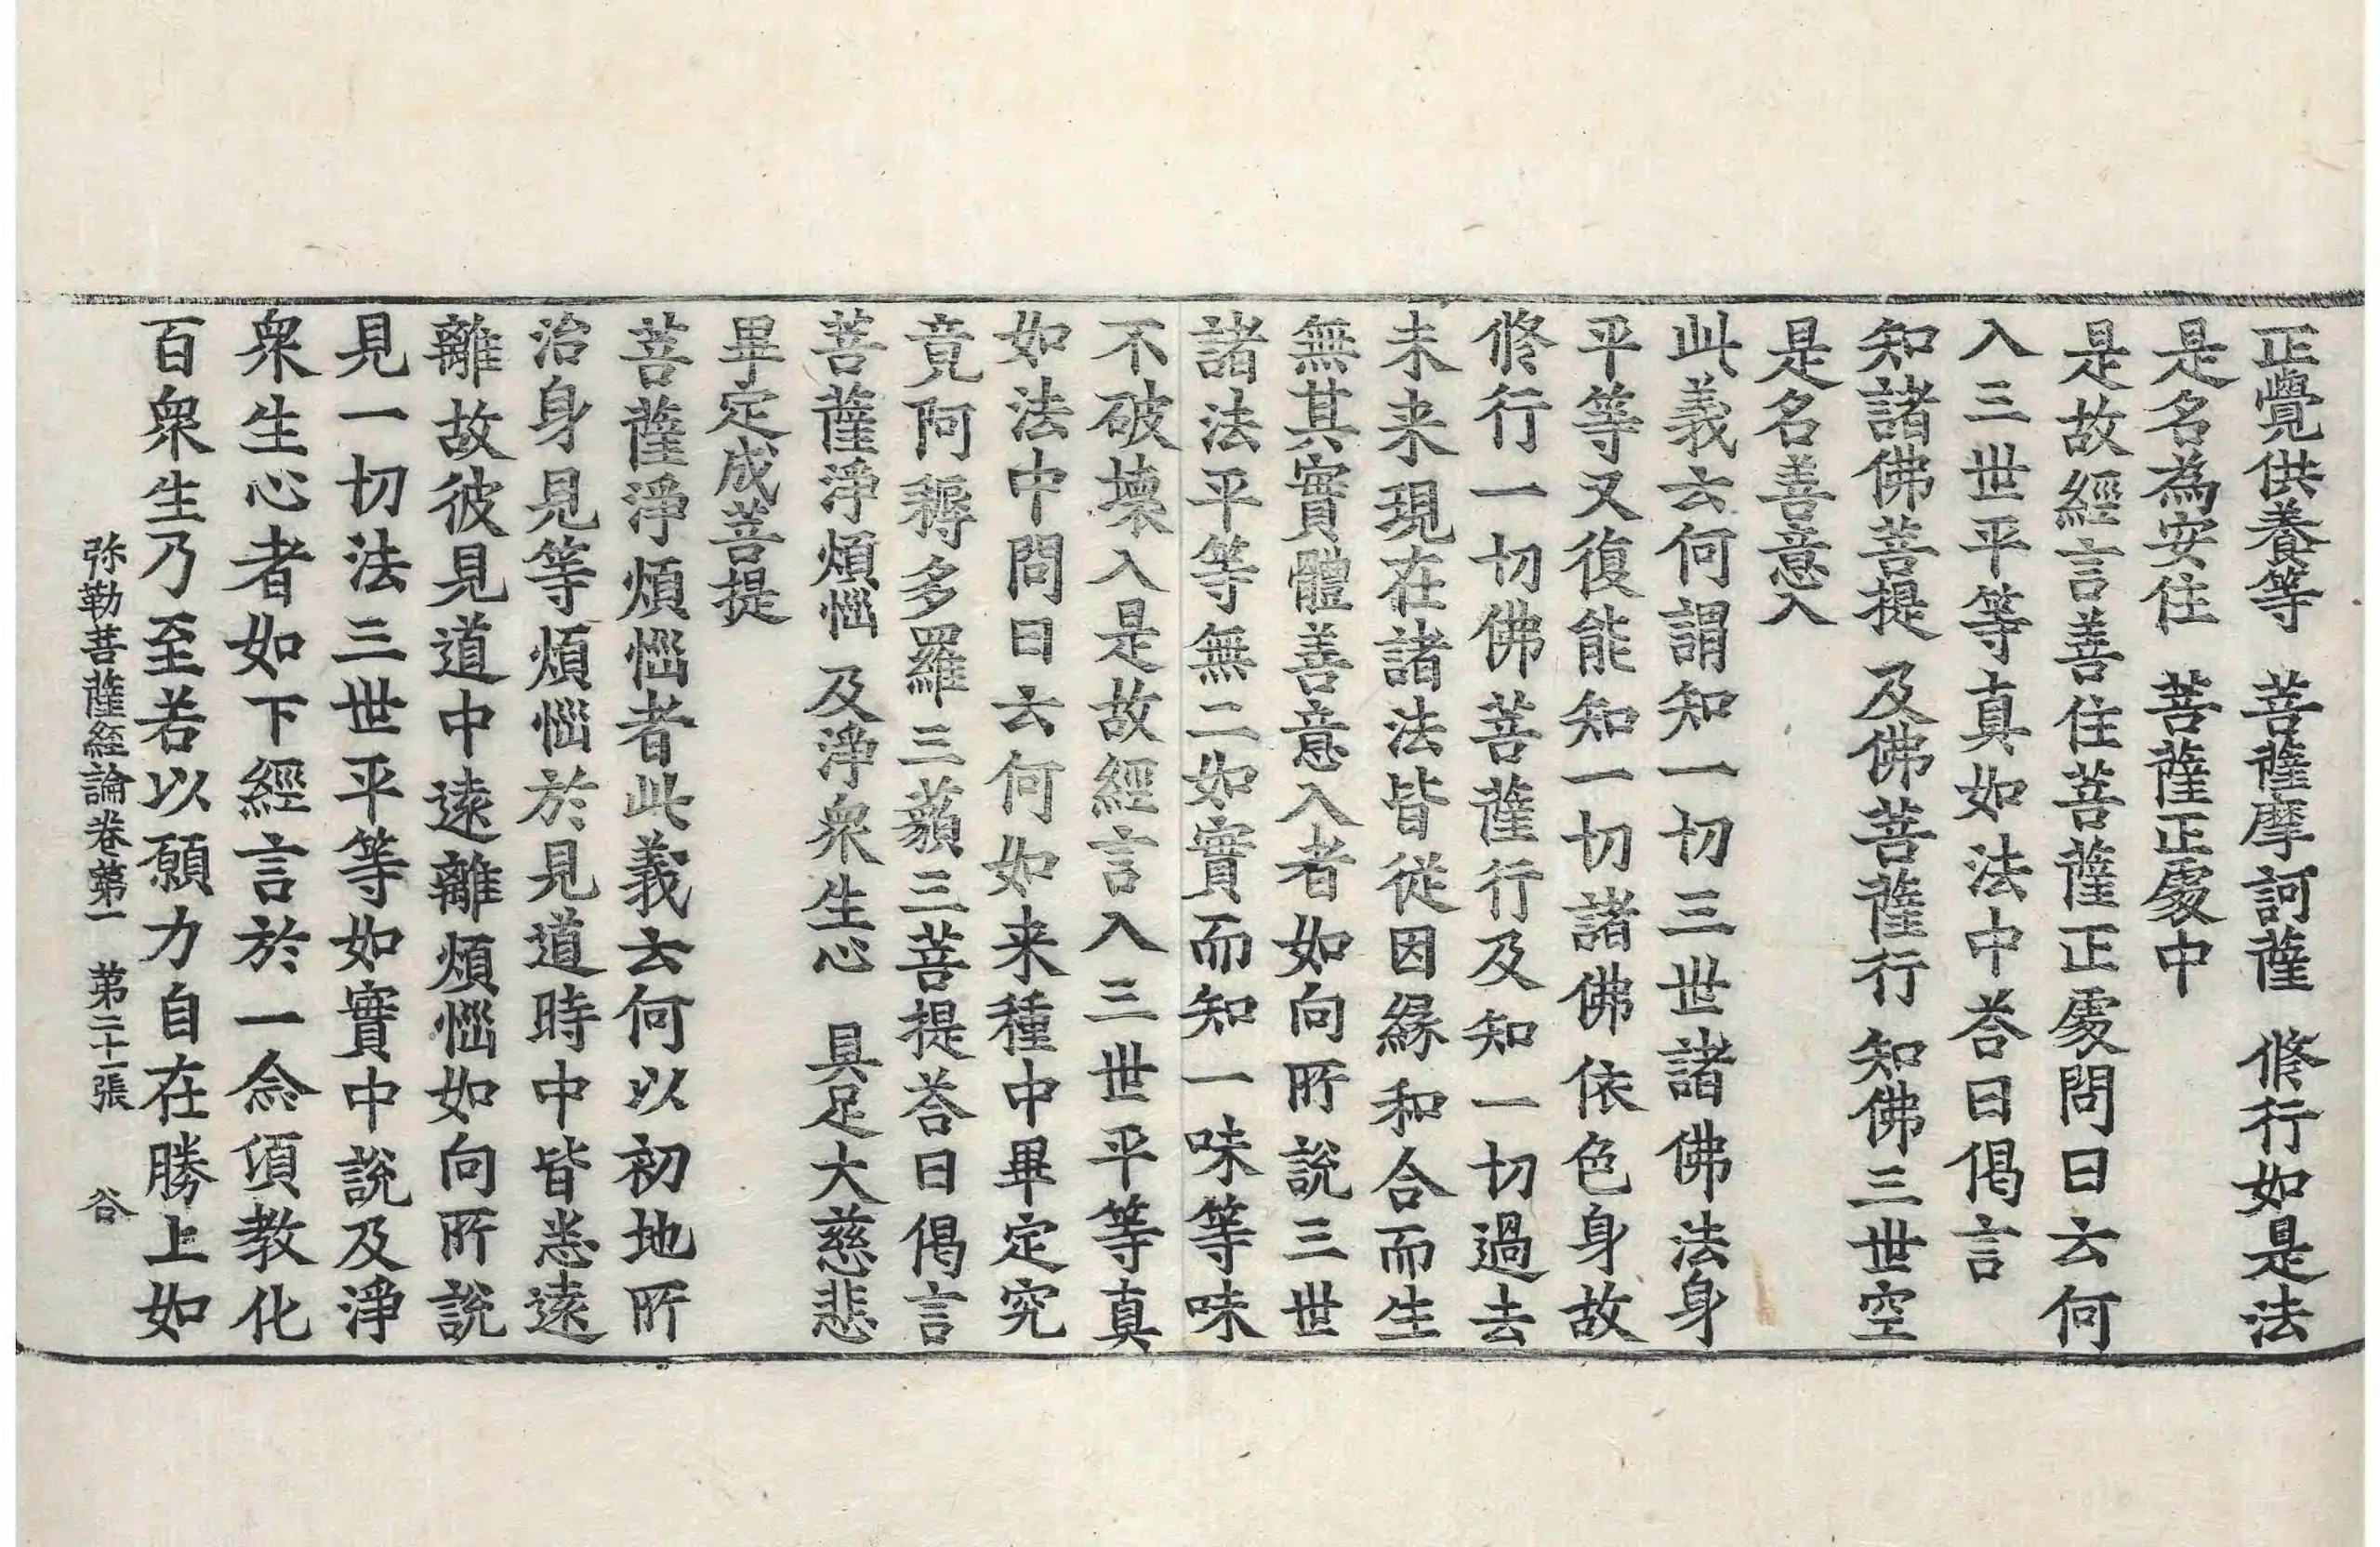 正覺供養等　菩薩摩訶薩　修行如是法
是名為安住　菩薩正處中
是故經言善住菩薩正處問曰云何
入三世平等真如法中荅曰偈言
知諸佛菩提　及佛菩薩行　知佛三世空
是名善意入
此義云何謂知一切三世諸佛法身
平等又復能知一切諸佛依色身故
修行一切佛菩薩行及知一切過去
未来現在諸法皆從因緣和合而生
無其實體善意入者如向所說三世
諸法平等無二如實而知一味等味
不破壞入是故經言入三世平等真
如法中問曰云何如来種中畢定究
竟阿耨多羅三藐三菩提荅曰偈言
菩薩淨煩惱　及淨衆生心　具足大慈悲
畢定成菩提
菩薩淨煩惱者此義云何以初地所
治身見等煩惱於見道時中皆悉遠
離故彼見道中遠離煩惱如向所說
見一切法三世平等如實中說及淨
衆生心者如下經言於一念頃教化
百衆生乃至若以願力自在勝上如
弥勒菩薩經論卷第一　第二十一張　谷